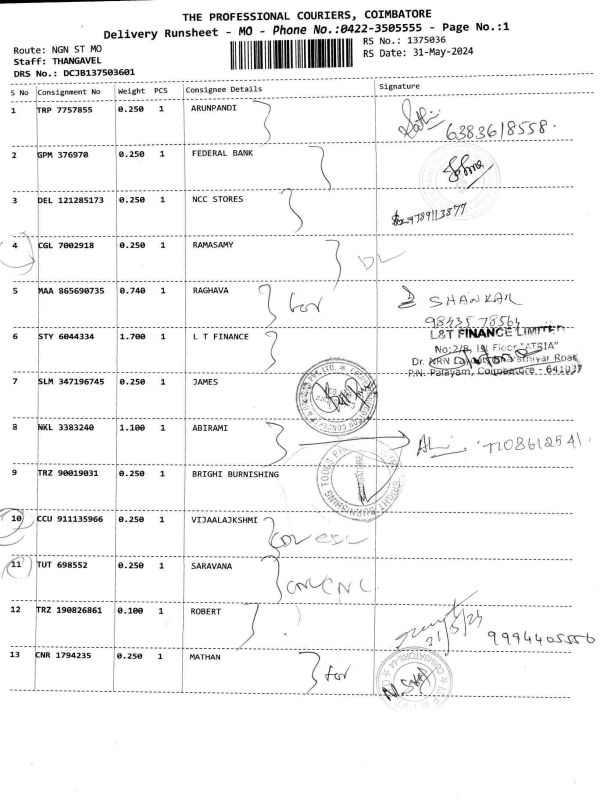 THE PROFESSIONAL COURIERS, COIMBATORE
Delivery Runsheet - MO - Phone No.:0422-3505555 - Page No.:1
Route: NGN ST MO
Staff: THANGAVEL
DRS No.: DCJB137503601
RS No.: 1375036
RS Date: 31-May-2024
S No Consignment No Weight PCS Consignee Details Signature
1 TRP 7757855 0.250 1 ARUNPANDI
6383618558.
2 GPM 376970 0.250 1 FEDERAL BANK
3 DEL 121285173 0.250 1 NCC STORES
9789113877
4 CGL 7002918 0.250 1 RAMASAMY
DL
5 MAA 865690735 0.740 1 RAGHAVA for SHANKAR
98435 78564
6 STY 6044334 1.700 1 L T FINANCE
L&T FINANCE LIMITED
No:2/8, Floor "ATRIA"
Dr. NRN Road
P.N. Palayam, Coimbatore - 641037
7 SLM 347196745 0.250 1 JAMES
8 NKL 3383240 1.100 1 ABIRAMI
7708612541.
9 TRZ 90019031 0.250 1 BRIGHI BURNISHING
BRIGHT BURNISHING TOOLS
10 CCU 911135966 0.250 1 VIJAALAJKSHMI
11 TUT 698552 0.250 1 SARAVANA
CNL CNL
12 TRZ 190826861 0.100 1 ROBERT
31/5/24 9994405550
13 CNR 1794235 0.250 1 MATHAN for
COIMBATORE-44